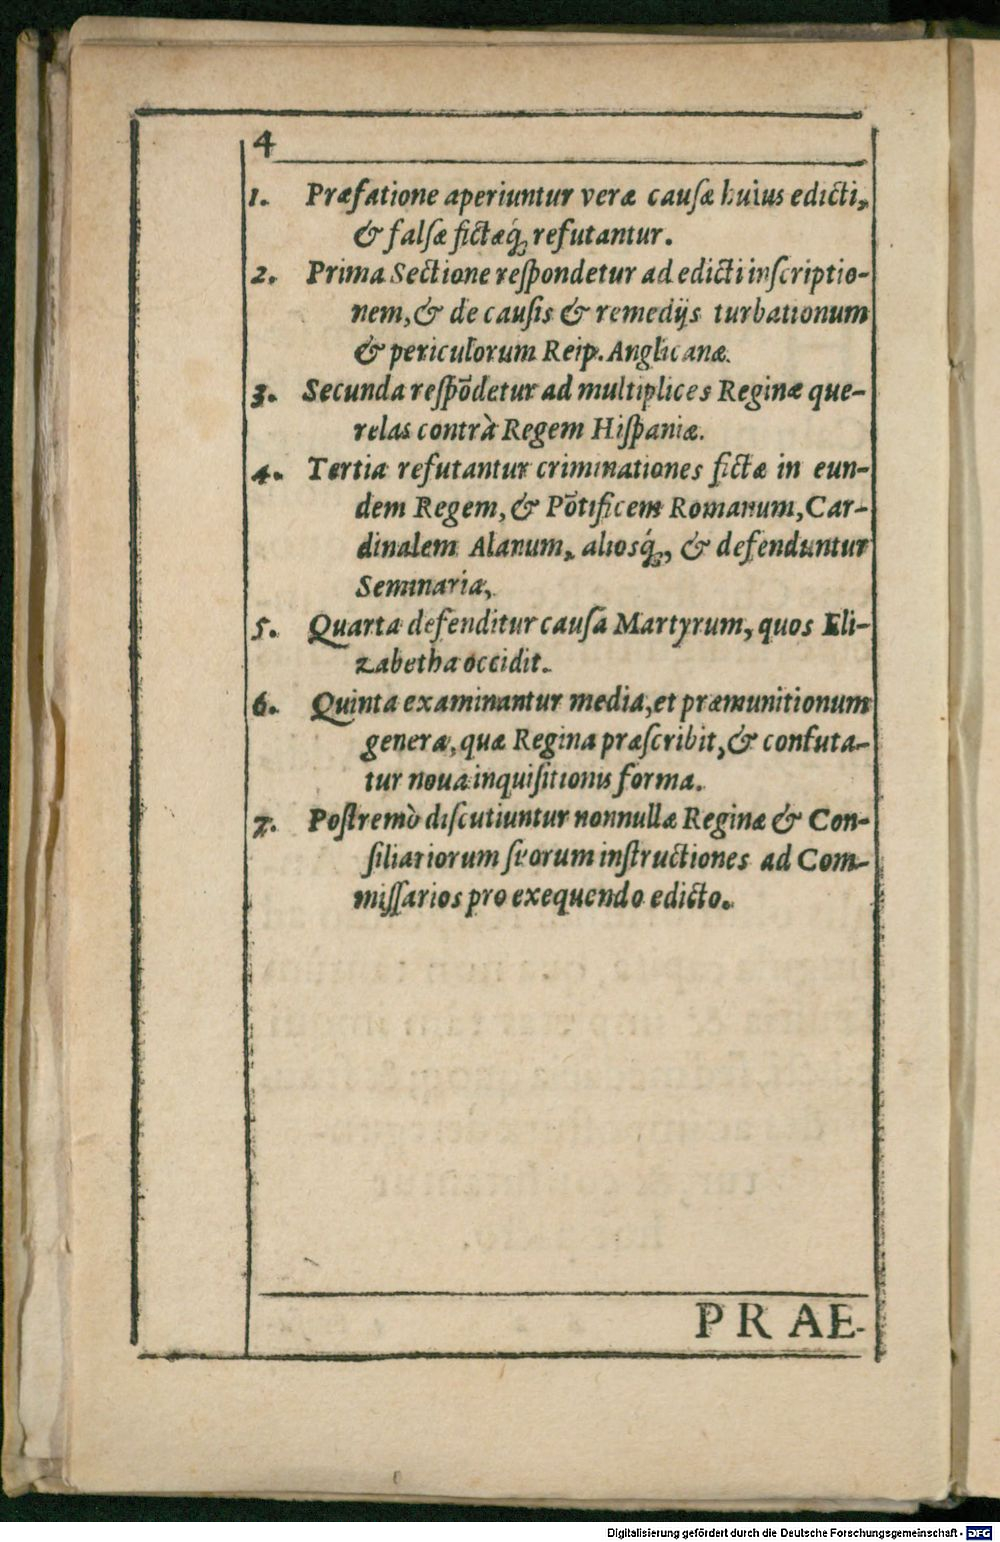 4
1. Præfatione aperiuntur veræ cauſæ huius edicti,
& falſæ fictæq́; refutantur.
2. Prima Sectione reſpondetur ad edicti inſcriptio-
nem, & de cauſis & remedijs turbationum
& periculorum Reip. Anglicanæ.
3. Secunda reſpōdetur ad multiplices Reginæ que-
relas contrà Regem Hiſpaniæ.
4. Tertia refutantur criminationes fictæ in eun-
dem Regem, & Pōtificem Romanum, Car-
dinalem Alanum, aliosq́;, & defenduntur
Seminaria,
5. Quarta defenditur cauſa Martyrum, quos Eli-
zabetha occidit.
6. Quinta examinantur media, et præmunitionum
genera, quæ Regina præſcribit, & confuta-
tur noua inquiſitionis forma.
7. Poſtremò diſcutiuntur nonnullæ Reginæ & Con-
ſiliariorum ſuorum inſtructiones ad Com-
miſſarios pro exequendo edicto.
PRAE-
Digitalisierung gefördert durch die Deutsche Forschungsgemeinschaft - DFG